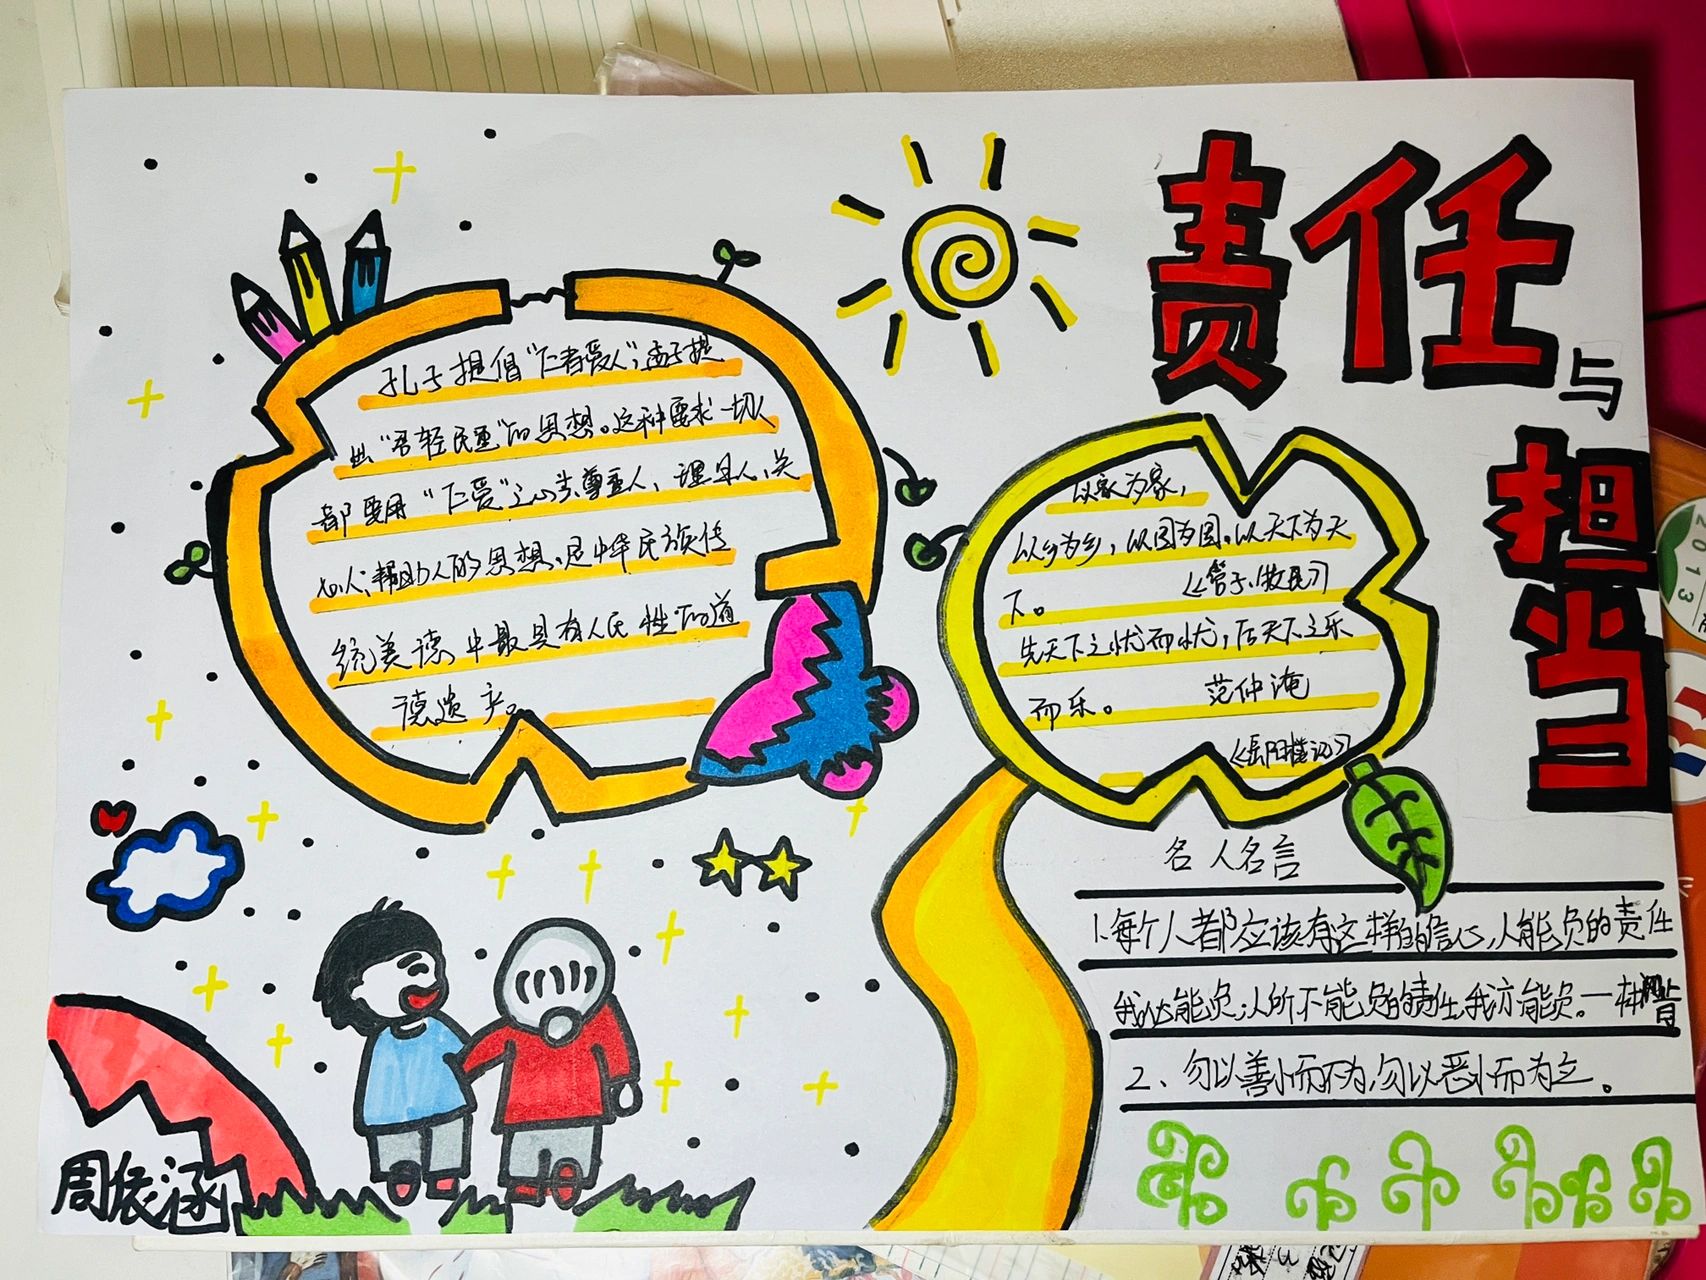 责任
与
担当
孔子提倡“仁者爱人”，孟子提
出“君轻民重”的思想。这种要求一切人
都要用“仁爱”之心去尊重人、理解人、关
心人、帮助人的思想，是中华民族传
统美德中最具有人民性的道
德遗产。
以家为家，
以乡为乡，以国为国，以天下为天
下。 《管子·牧民》
先天下之忧而忧，后天下之乐
而乐。 范仲淹
《岳阳楼记》
名人名言
1.每个人都应该有这样的信心，人能负的责任
我必能负；人所不能负的责任，我亦能负。一林肯
2、勿以善小而不为，勿以恶小而为之。
周依涵
2013